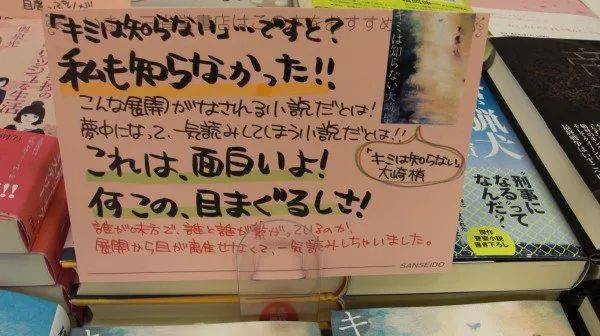 「キミは知らない」…ですと?
私も知らなかった!!
こんな展開がなされる小説だとは!
夢中になって、一気読みしてしまう小説だとは!!
これは、面白いよ!
何この、目まぐるしさ!
誰が味方で、誰と誰が繋がっているのか!
展開から目が離せなくて、一気読みしちゃいました。
SANSEIDO
キミは知らない
「キミは知らない」
大崎梢
猟犬
刑事に
なるって
なんだ?
傑作
警察小説
書き下ろし
な生活
キ